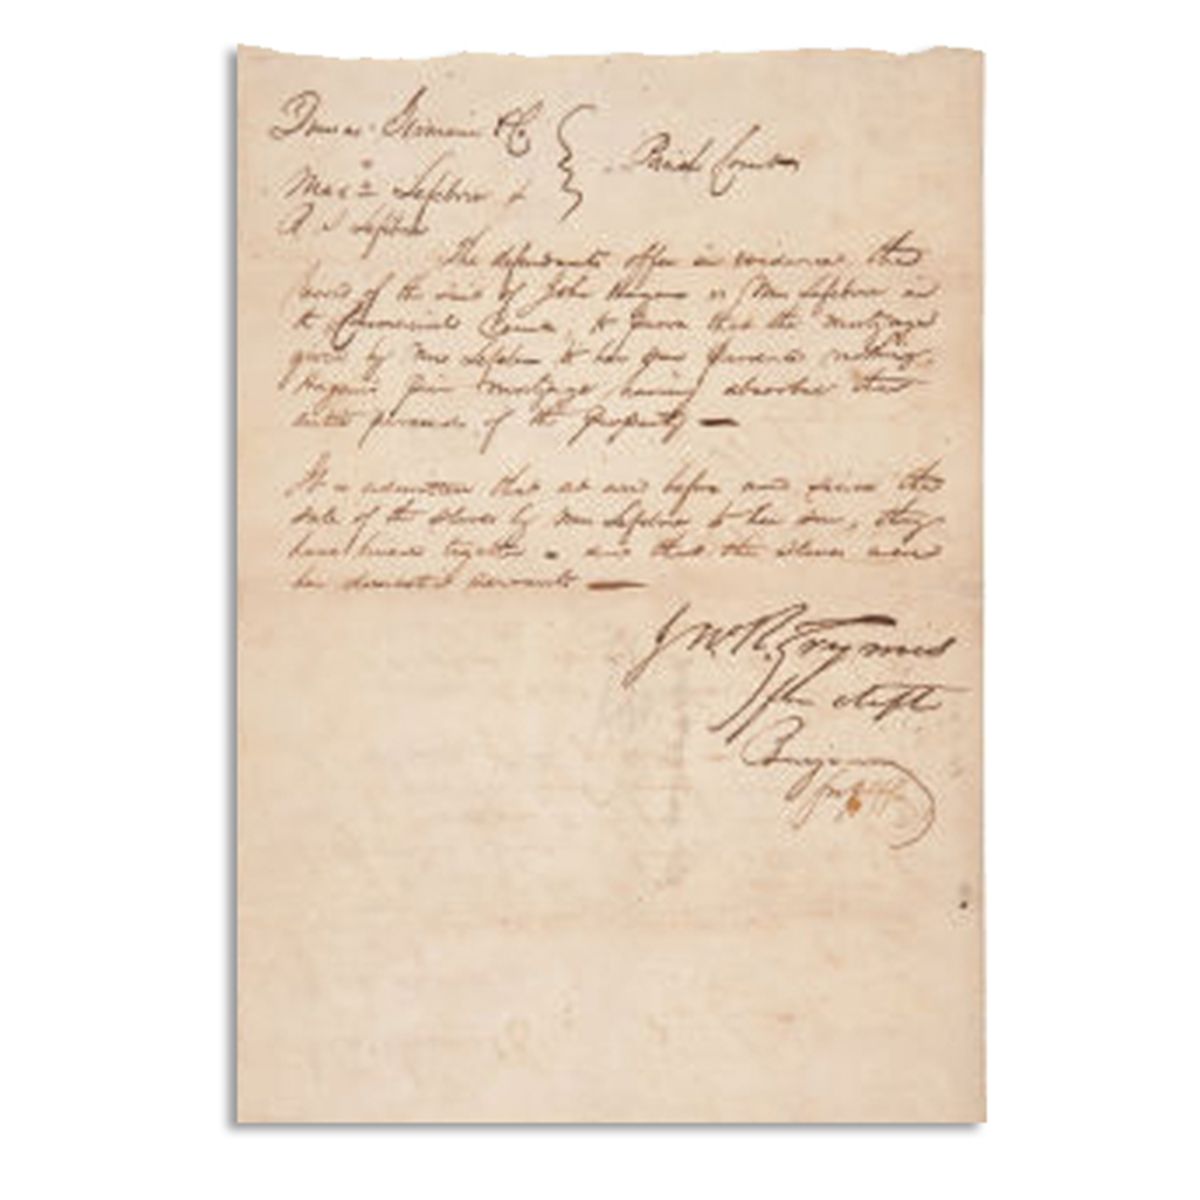 & Co.
Parish Court
Mad. Lefebvre &
A. S. Lefebvre
The defendants offer in evidence the
record of the suit of John Hagan vs Mrs Lefebvre in
the Commercial Court, to prove that the mortgage
given by Mrs Lefebvre to her son nothing
mortgage having absorbed the
entire proceeds of the property —
It is admitted that at and before and since the
sale of the slaves by Mrs Lefebvre to her son, they
have lived together - and that the slaves were
her domestic servants —
Jno R. Grymes
for defts
Benjamin